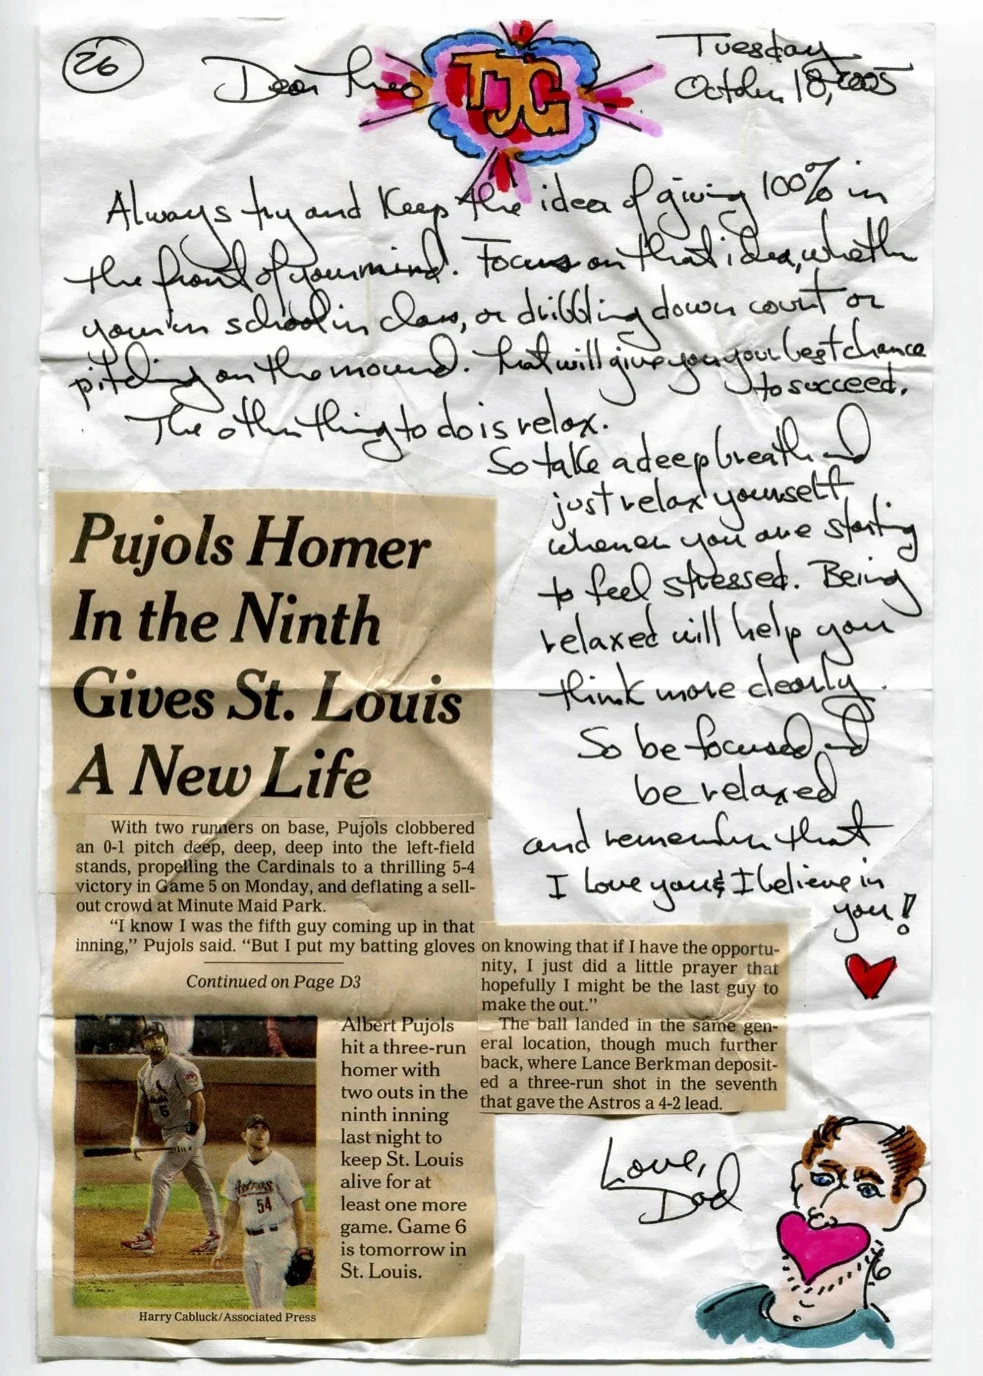 26
Dear Theo
TJG
Tuesday
October 18, 2005
Always try and keep the idea of giving 100% in
the front of your mind. Focus on that idea, whether
your in school in class, or dribbling down court or
pitching on the mound. That will give you your best chance
to succeed.
The other thing to do is relax.
So take a deep breath and
just relax yourself
whenever you are starting
to feel stressed. Being
relaxed will help you
think more clearly.
So be focused and
be relaxed
and remember that
I Love you & I believe in
you!
Pujols Homer
In the Ninth
Gives St. Louis
A New Life
With two runners on base, Pujols clobbered
an 0-1 pitch deep, deep, deep into the left-field
stands, propelling the Cardinals to a thrilling 5-4
victory in Game 5 on Monday, and deflating a sell-
out crowd at Minute Maid Park.
"I know I was the fifth guy coming up in that
inning," Pujols said. "But I put my batting gloves
Continued on Page D3
on knowing that if I have the opportu-
nity, I just did a little prayer that
hopefully I might be the last guy to
make the out."
The ball landed in the same gen-
eral location, though much further
back, where Lance Berkman deposit-
ed a three-run shot in the seventh
that gave the Astros a 4-2 lead.
Albert Pujols
hit a three-run
homer with
two outs in the
ninth inning
last night to
keep St. Louis
alive for at
least one more
game. Game 6
is tomorrow in
St. Louis.
5
Astros
54
Harry Cabluck/Associated Press
Love,
Dad